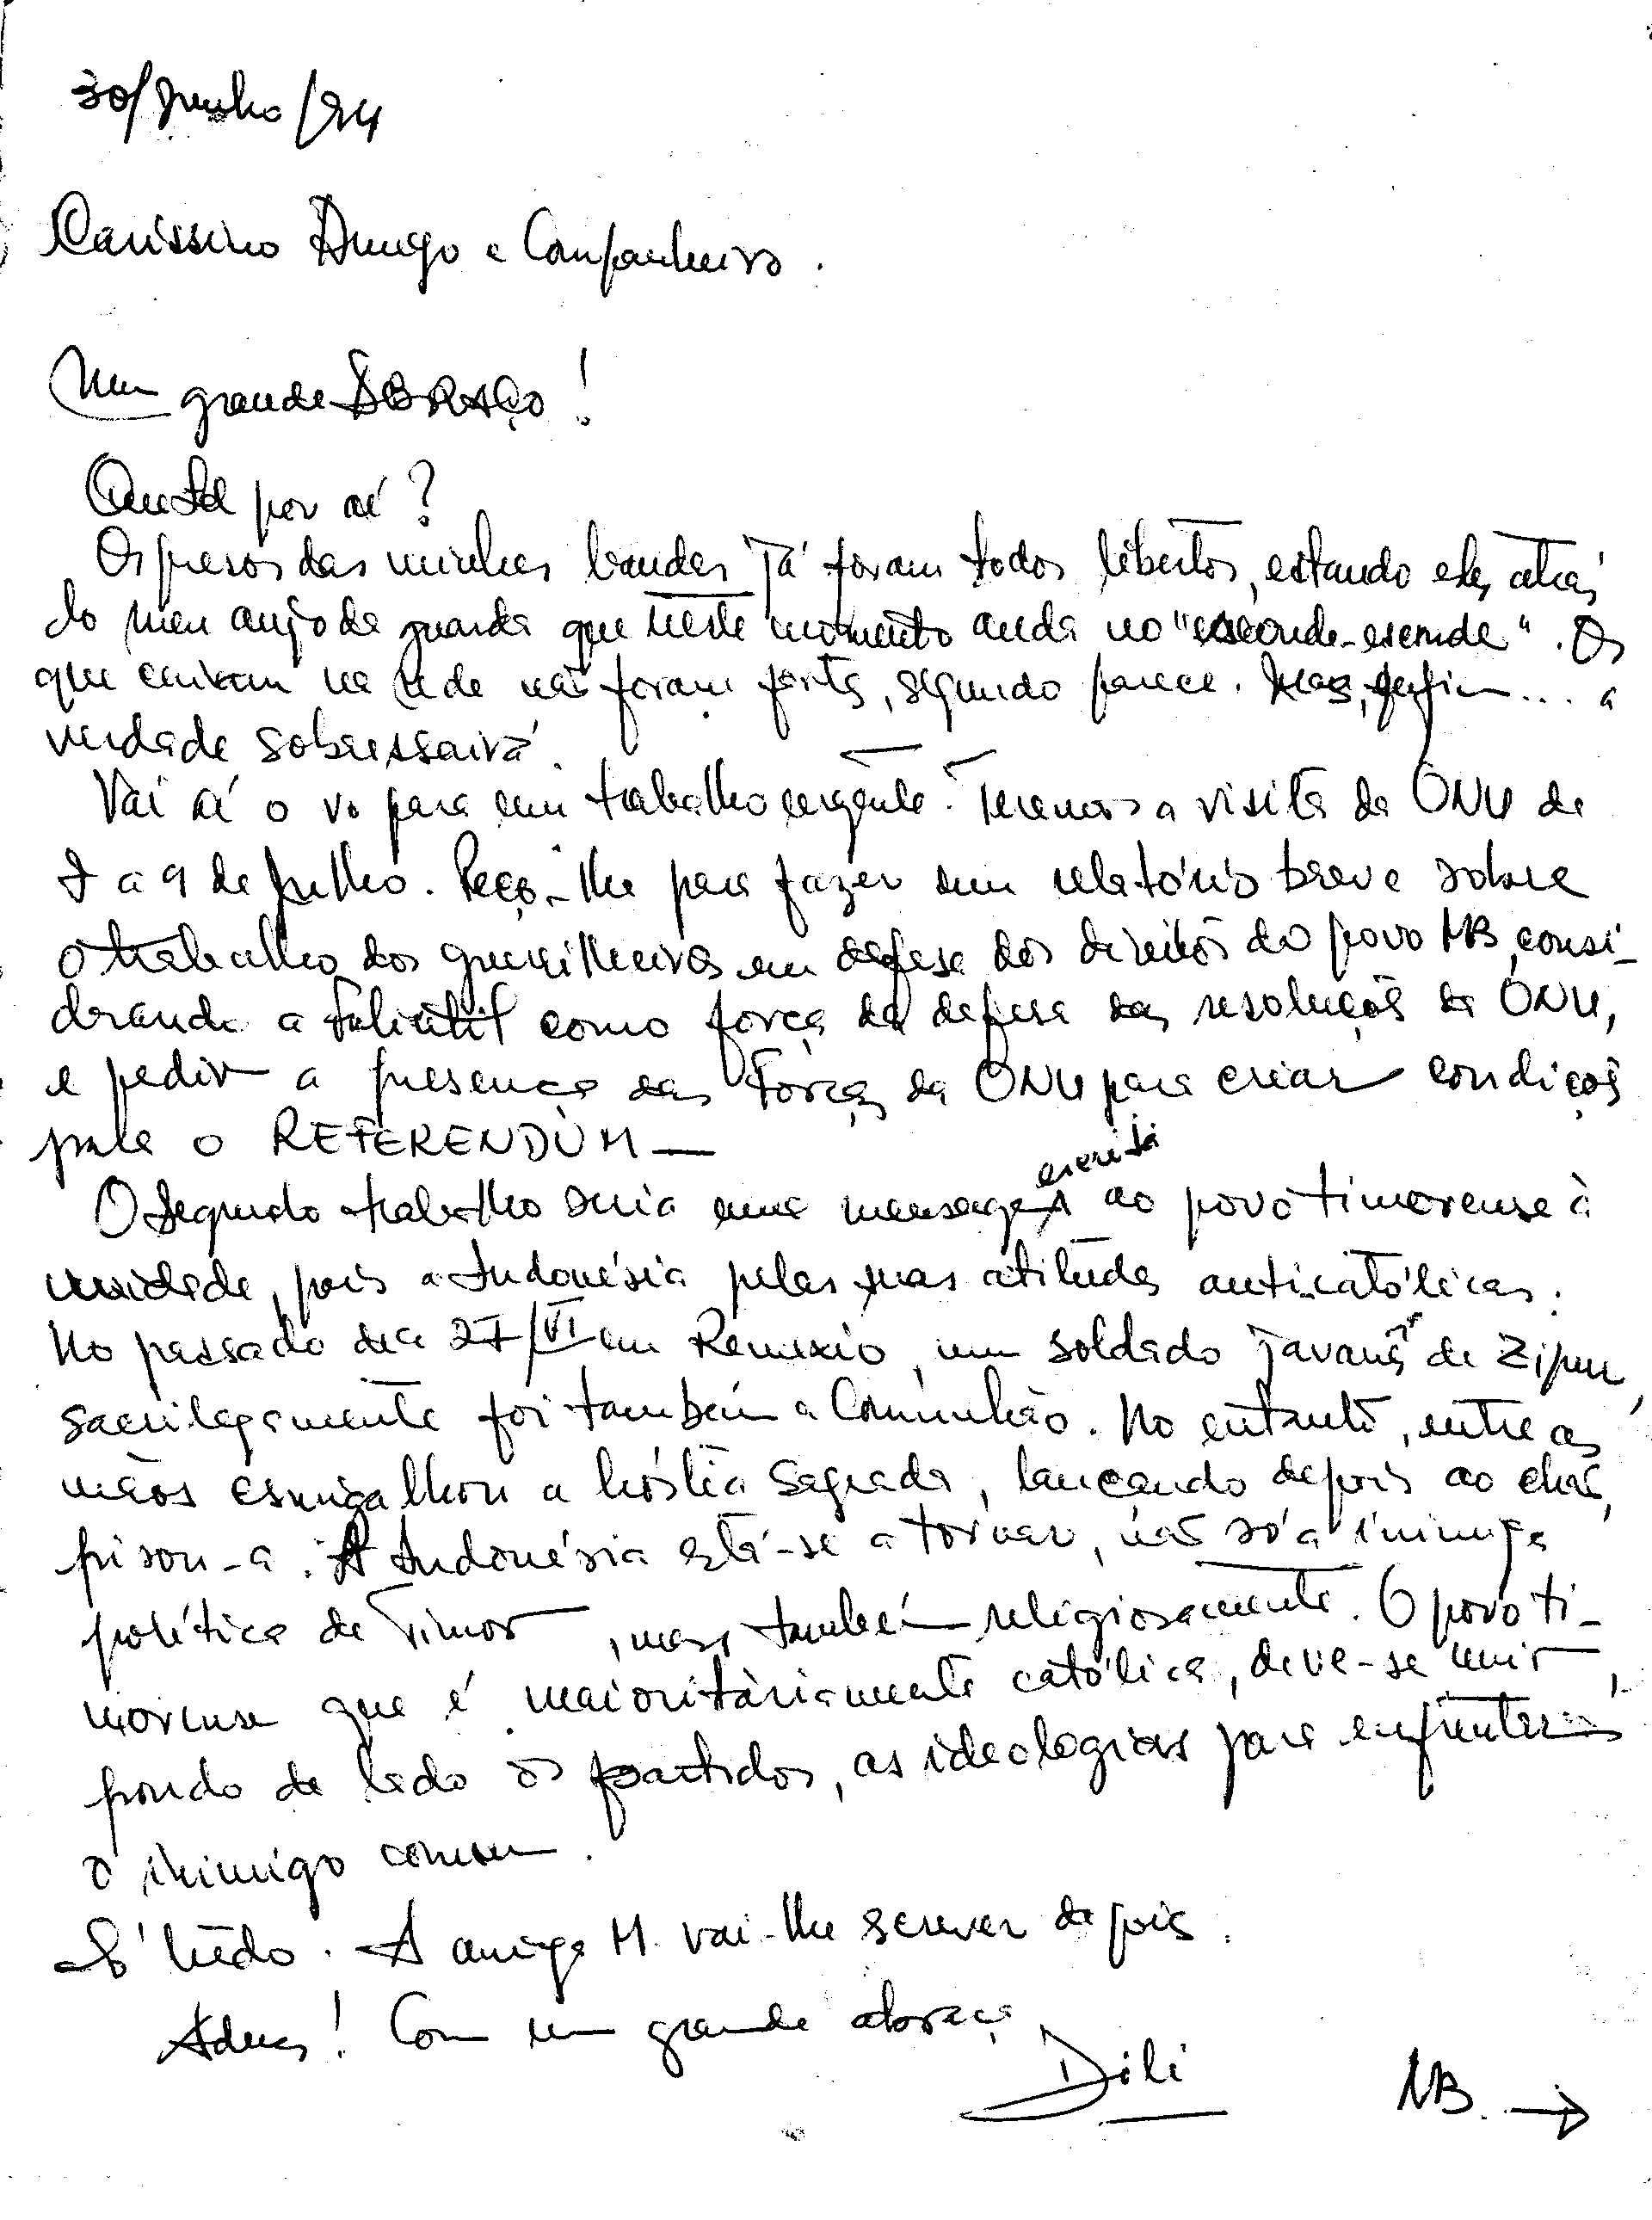 30/Junho/94
Caríssimo Amigo e Companheiro.
Um grande ABRAÇO!
Que tal por aí?
Os presos das minhas bandas já foram todos libertos, estando eles atrás
do meu anjo da guarda que neste momento anda no "esconde-esconde". Os
que caíram na rede não foram fortes, segundo parece. Mas, enfim... a
verdade sobressairá.
Vai aí o v. para um trabalho urgente. Teremos a visita da ONU de
7 a 9 de Julho. Peço-lhe para fazer um relatório breve sobre
o trabalho dos guerrilheiros em defesa dos direitos do povo MB, consi-
derando a Falintil como força da defesa das resoluções da ONU,
e pedir a presença das Forças da ONU para criar condições
para o REFERENDUM —
O segundo trabalho seria uma mensagem escrita ao povo timorense à
unidade, pois a Indonésia pelas suas atitudes anticatólicas.
No passado dia 27/VI em Remexio, um soldado javanês de Zipur,
sacrilegamente foi também à Comunhão. No entanto, entre as
mãos esmigalhou a hóstia sagrada, lançando depois ao chão,
pisou-a. A Indonésia está-se a tornar, não só a inimiga
política de Timor, mas também religiosamente. O povo ti-
morense que é maioritàriamente católica, deve-se unir,
pondo de lado os partidos, as ideologias para enfrentar
o inimigo comum.
Só tudo. A amiga M. vai-lhe screver depois.
Adeus! Com um grande abraço
Dili
NB. →